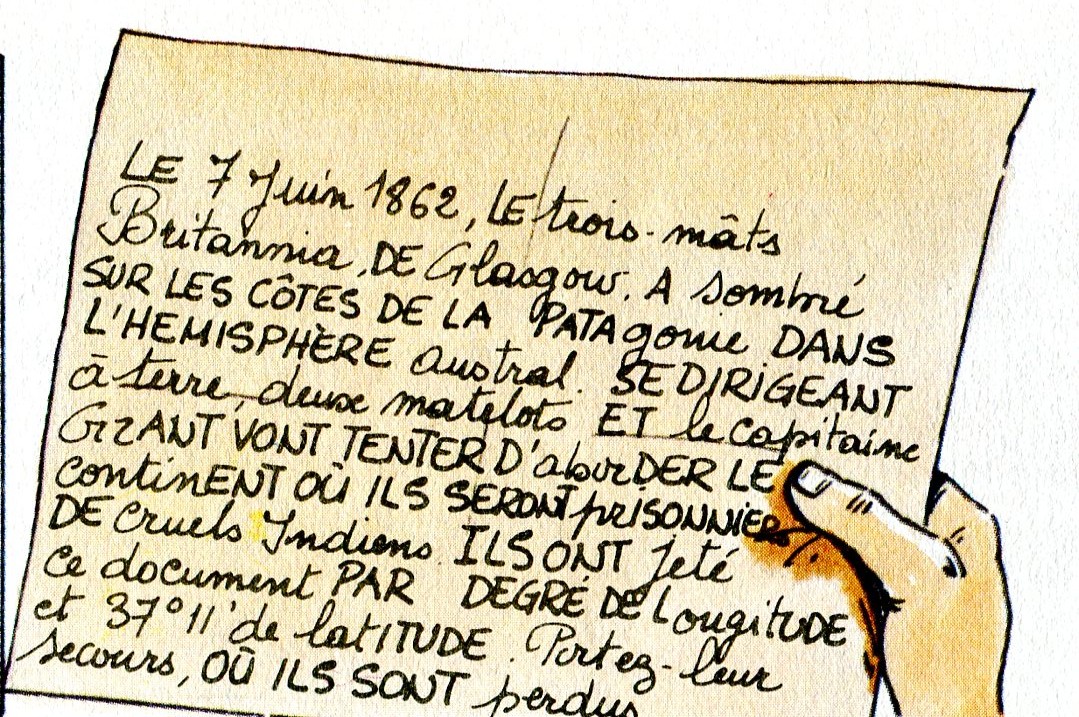 LE 7 Juin 1862, LE trois-mâts
Britannia, DE Glasgow, A sombré
SUR LES CÔTES DE LA PATAgonie DANS
L'HEMISPHÈRE austral. SE DIRIGEANT
à terre, deux matelots ET le capitaine
GRANT VONT TENTER D'aborDER LE
continENT OÙ ILS SERONT prISONNIERS
DE cruels Indiens. ILS ONT jeté
ce document PAR DEGRÉ DE LongitUDE
et 37°11' de latITUDE. Portez-leur
secours, OÙ ILS SONT perdus